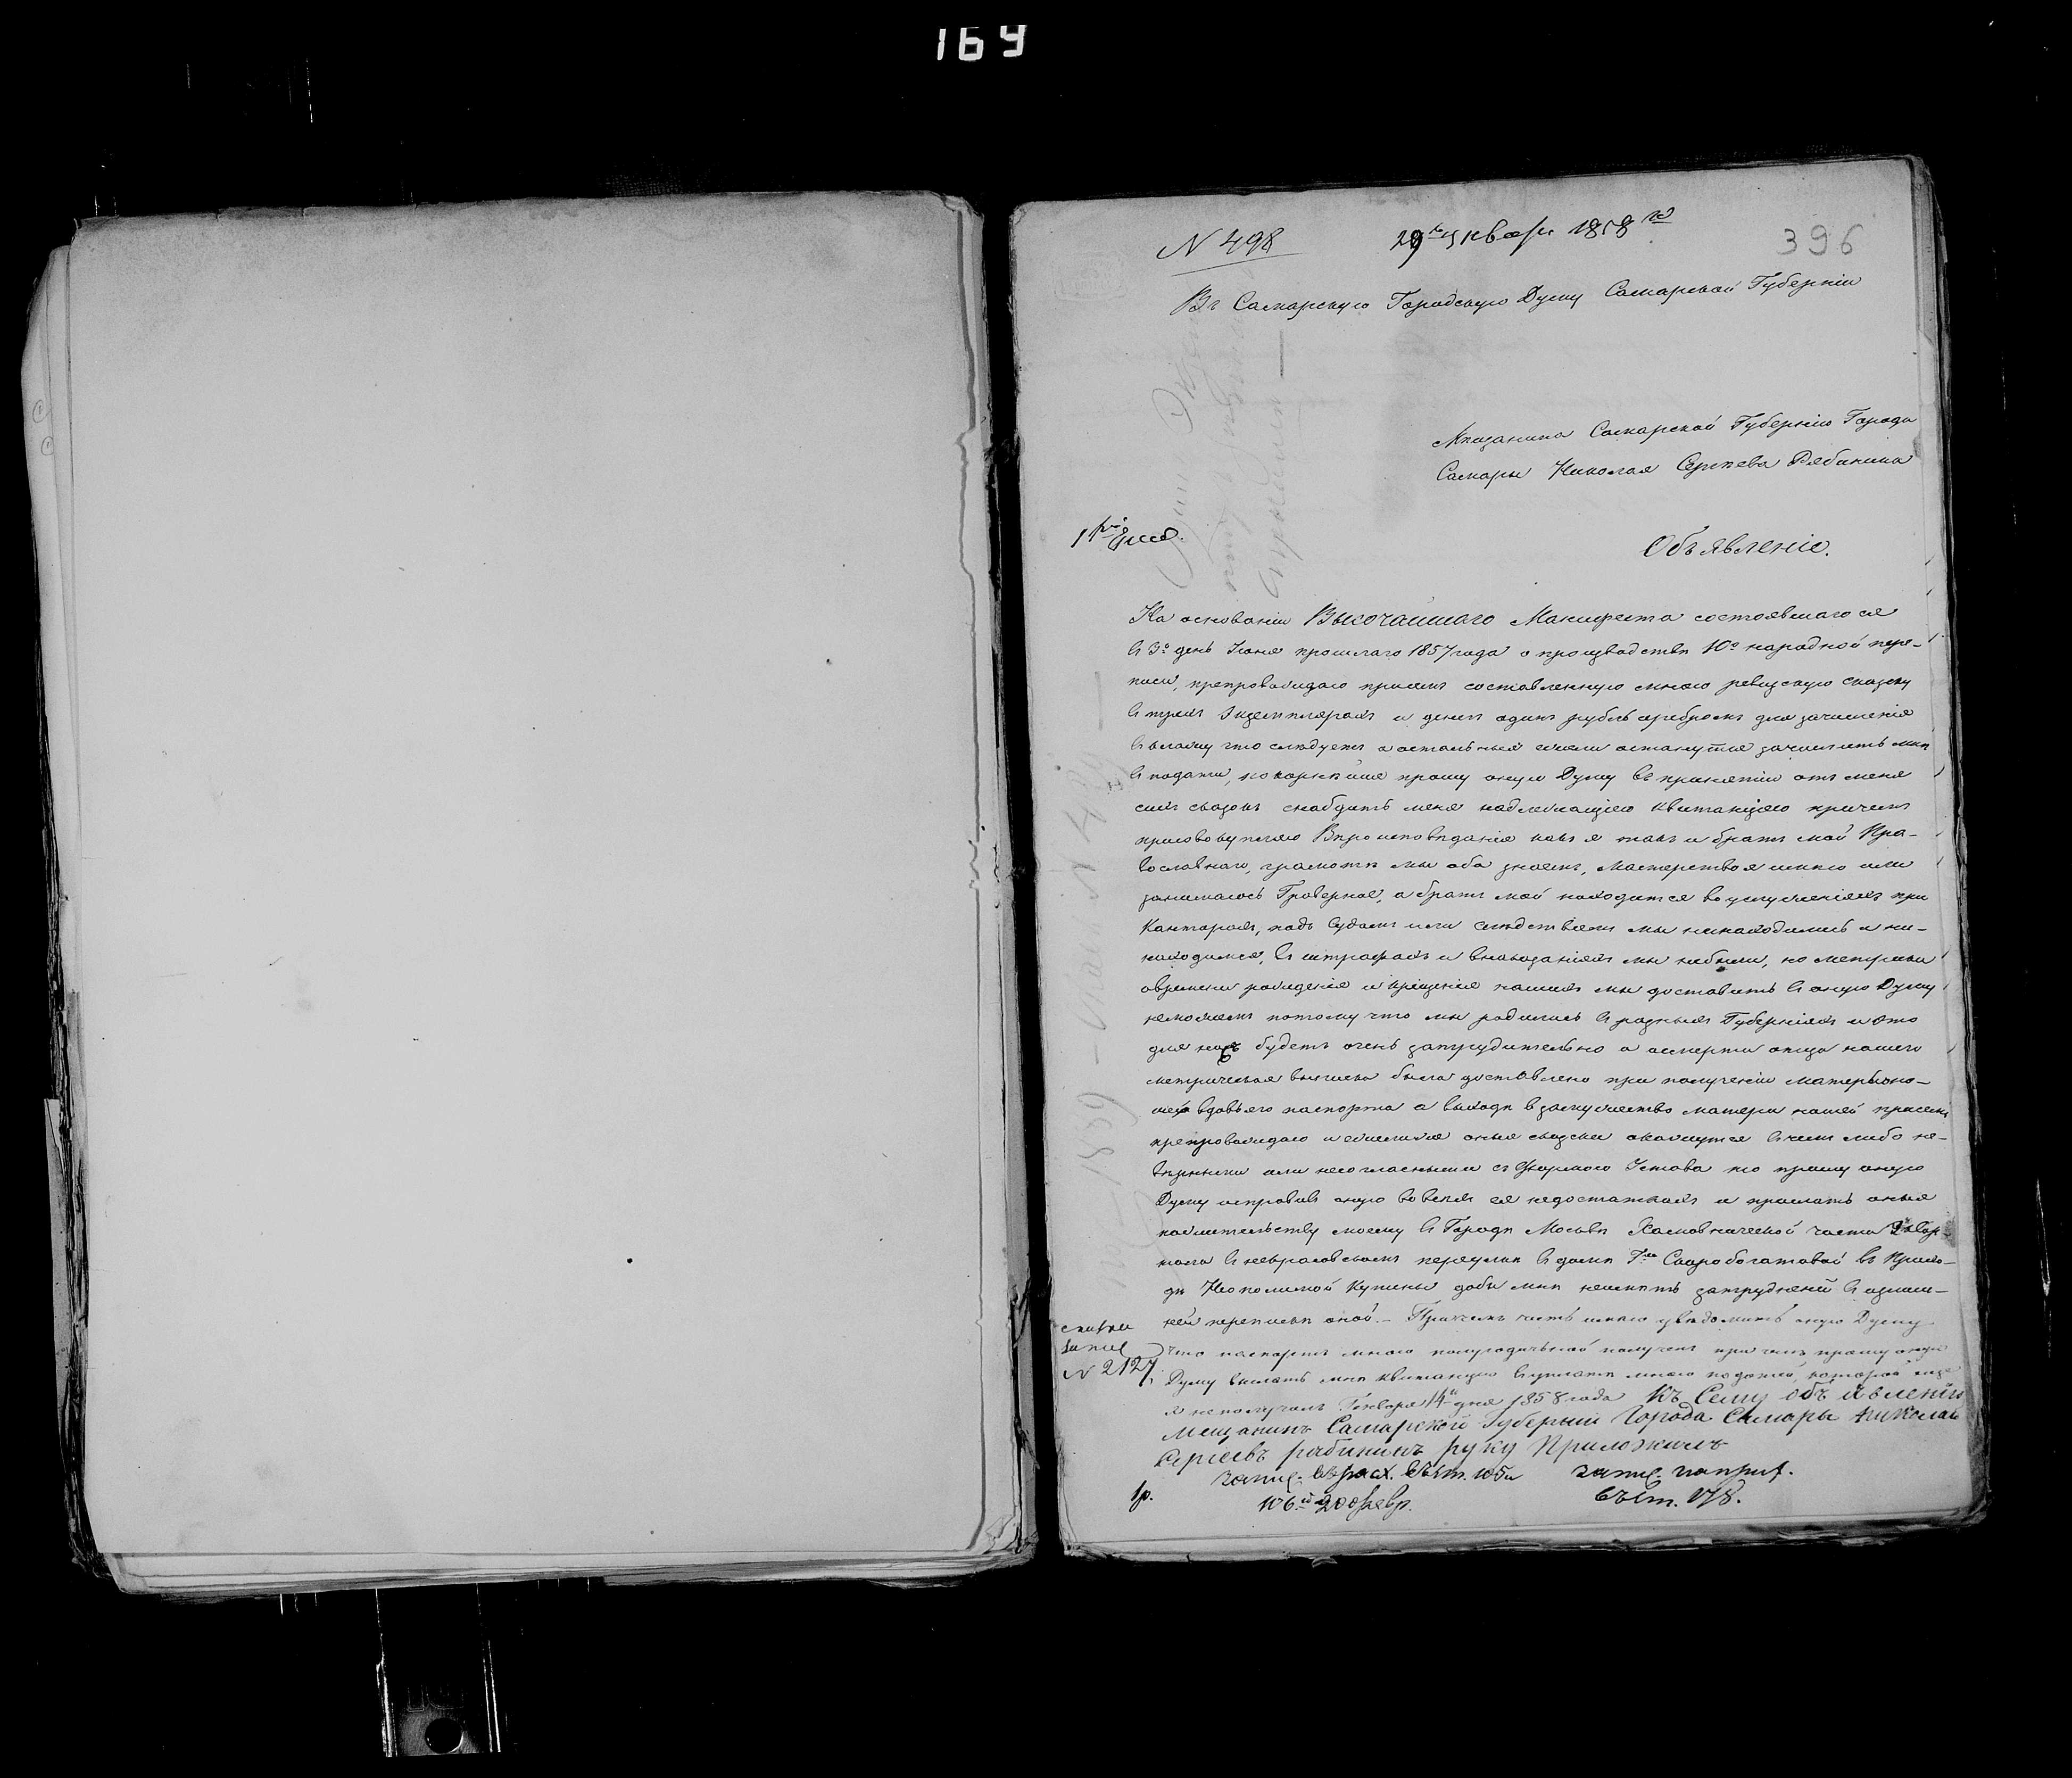 164
N 498 29го января 1858го 396
Въ Самарскую Городскую Думу Самарской Губерніи
Мещанина Самарской Губерніи Города
Самары Николая Сергеева Рябинина
Объявленіе.
На основаніи Высочайшаго Манифеста состоявшагося
въ 3й день Іюня прошлаго 1857 года о производстве 10й народной пере-
писи, препровождаю присемъ составленную мною ревизскую сказку
в трехъ экземплярахъ и денегъ одинъ рубль серебромъ для зачисленія
в казну что следуетъ а остальныя ежели останутся зачислить мне
в подати, покорнейше прошу оную Думу въ принятіи отъ меня
сихъ сказокъ снабдить меня надлежащею квитанціею причемъ
присовокупляю Вероисповеданія какъ я такъ и братъ мой Пра-
вославнаго, грамоте мы оба знаемъ, Мастерство я имею или
занимаюсь Граверное, а братъ мой находится в услуженіяхъ при
Канторахъ, подъ судомъ или следствіемъ мы ненаходились и не-
находимся, в штрафахъ и взысканіяхъ мы небыли, но метрики
овремени рожденія и крещенія нашихъ мы доставить в оную Думу
неможемъ потому что мы родились в разныхъ Губерніяхъ и это
для насъ будетъ очень затруднительно а осмерти отца нашего
метрическая выписка была доставлена при полученіи матерью на-
шей вдовьего паспорта о выходе в замужество матери нашей присемъ
препровождаю и ежелижъ оныя сказки окажутся в чемъ либо не-
верными или несогласными съ формою Устава то прошу оную
Думу исправить оную во всехъ ея недостаткахъ и прислать оныя
пожительству моему в Городе Москве Хамовнической части 2 квар-
тала в неврасовскомъ переулке в доме Гжи Скоробогатовой въ Прихо-
де Неополимой Купины дабы мне неиметь затрудненій в излиш-
ней переписке оной. — Причемъ честь имею уведомить оную Думу
что паспортъ мною полугодичный полученъ при чемъ прошу оную
N 2127. Думу выслать мне квитанцію в уплате мною податей, которой еще
я неполучалъ Генваря 14 дня 1858 года Къ Сему объявленію
Мещанинъ Самарской Губерніи Города Самары Николай
Сергеевъ рябининъ руку Приложилъ
1р. февр.